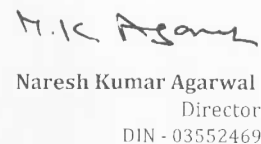 Naresh Kumar Agarwal
Director
DIN - 03552469